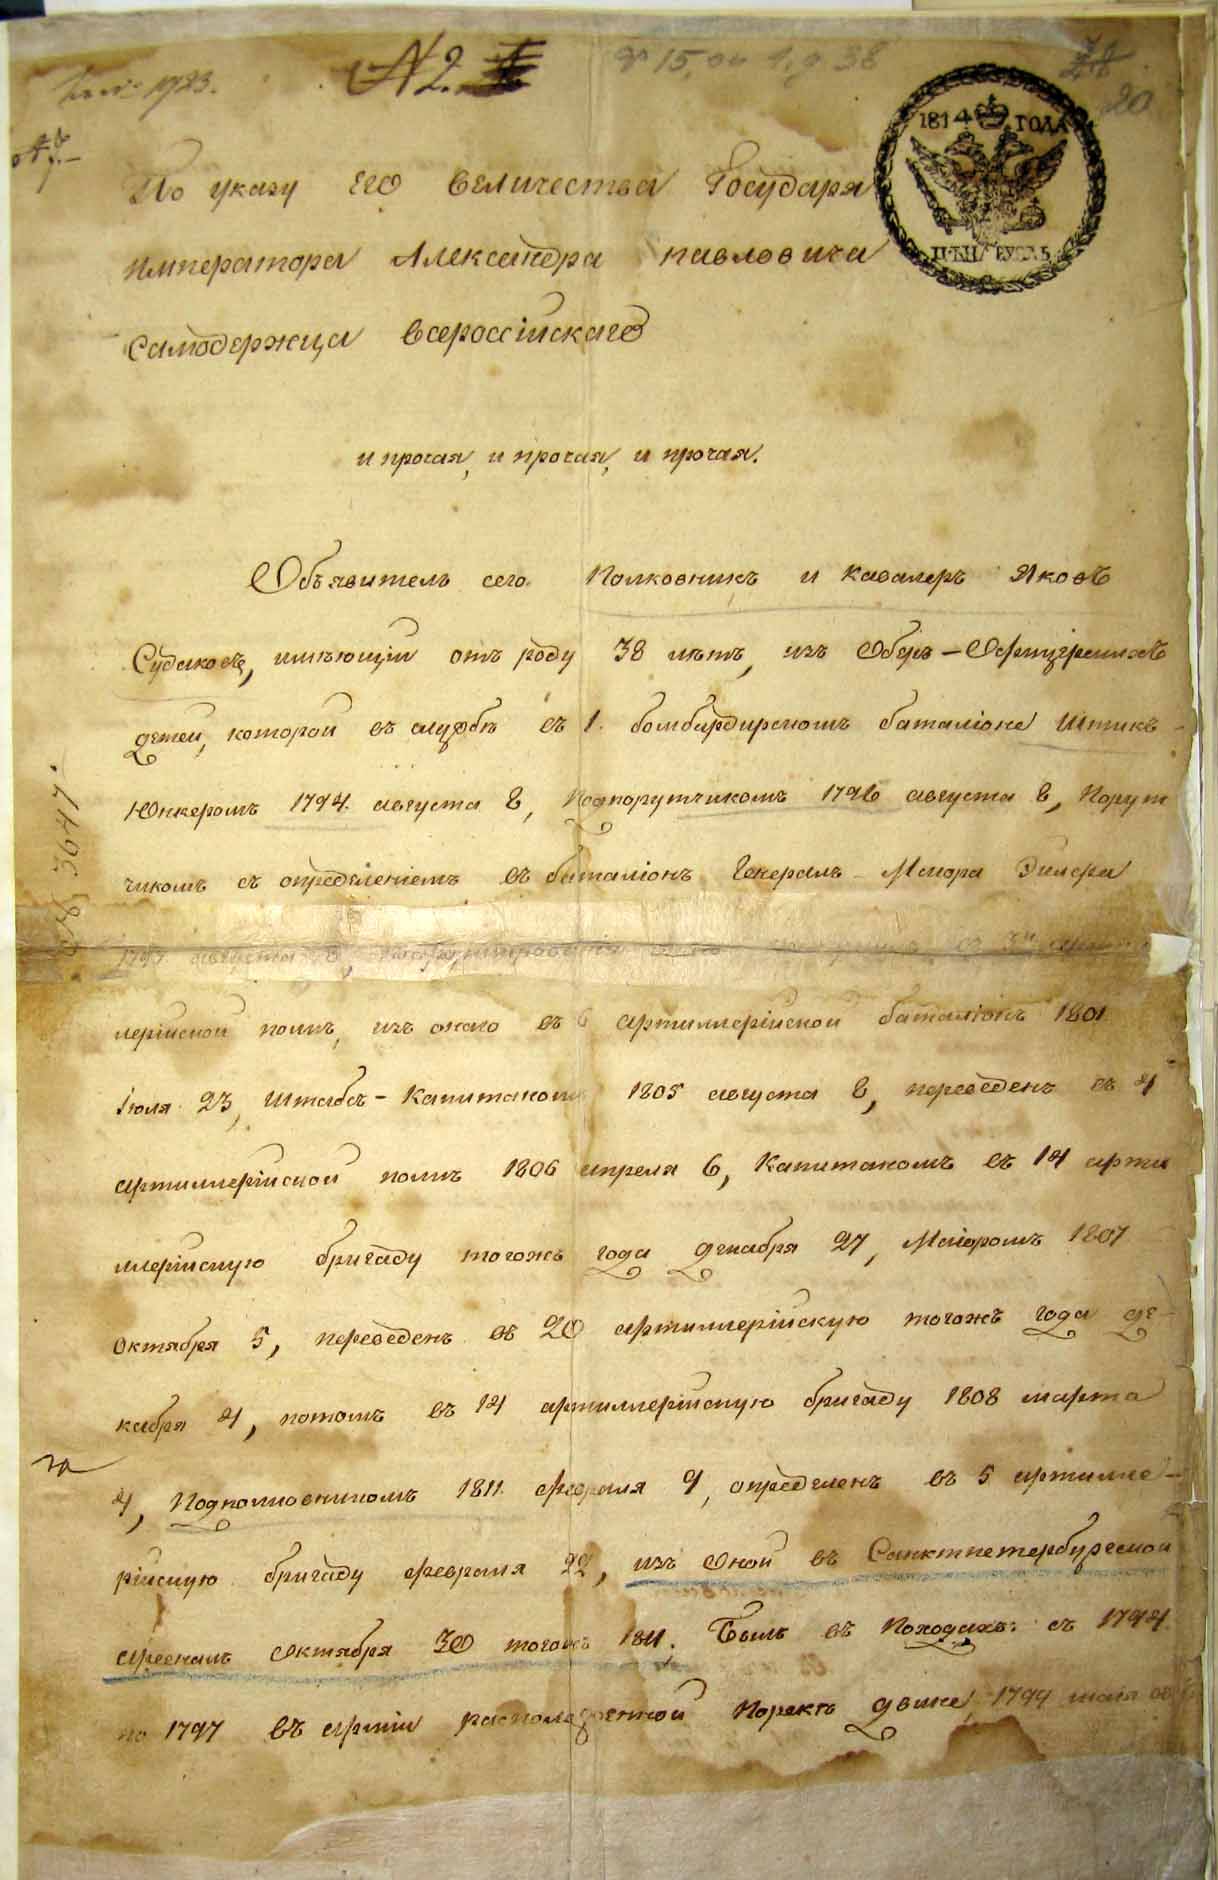 1923.
№ 2.
ф 15, оп 1, д 38
20
1814 ГОДА
ЦѢНА РУБЛЬ
По указу его величества Государя
императора Александра павловича
Самодержца всероссійскаго
и прочая, и прочая, и прочая.
Объявитель сего Полковникъ и кавалеръ Яковъ
Судаковъ, имѣющій отъ роду 38 лѣтъ, изъ Оберъ-Офицерскихъ
детей, которой въ службѣ въ 1. бомбардирскомъ баталіоне Штикъ-
Юнкеромъ 1794. августа 8, Подпорутчикомъ 1796 августа 8, Порут
чикомъ съ определеніемъ въ баталіонъ Генералъ-Маіора Эилера
1797 августа 8,
лерійской полкъ, изъ онаго въ 6 артиллерійской баталіонъ 1801
Іюля 23, Штабсъ-Капитаномъ 1805 августа 8, переведенъ въ 4
артиллерійской полкъ 1806 апреля 6, Капитаномъ въ 14 арти
ллерійскую бригаду тогожъ года декабря 27, Маіоромъ 1807
Октября 5, переведенъ въ 20 артиллерійскую тогожъ года де-
кабря 4, потомъ въ 14 артиллерійскую бригаду 1808 марта
4, Подполковникомъ 1811 февраля 9, определенъ въ 5 артилле-
рійскую бригаду февраля 22, изъ Оной въ Санктпетербургской
арсеналъ Октября 30 тогожъ 1811. Былъ въ Походахъ: съ 1794
по 1797 въ арміи расположенной Порекѣ двине, 1799 маія